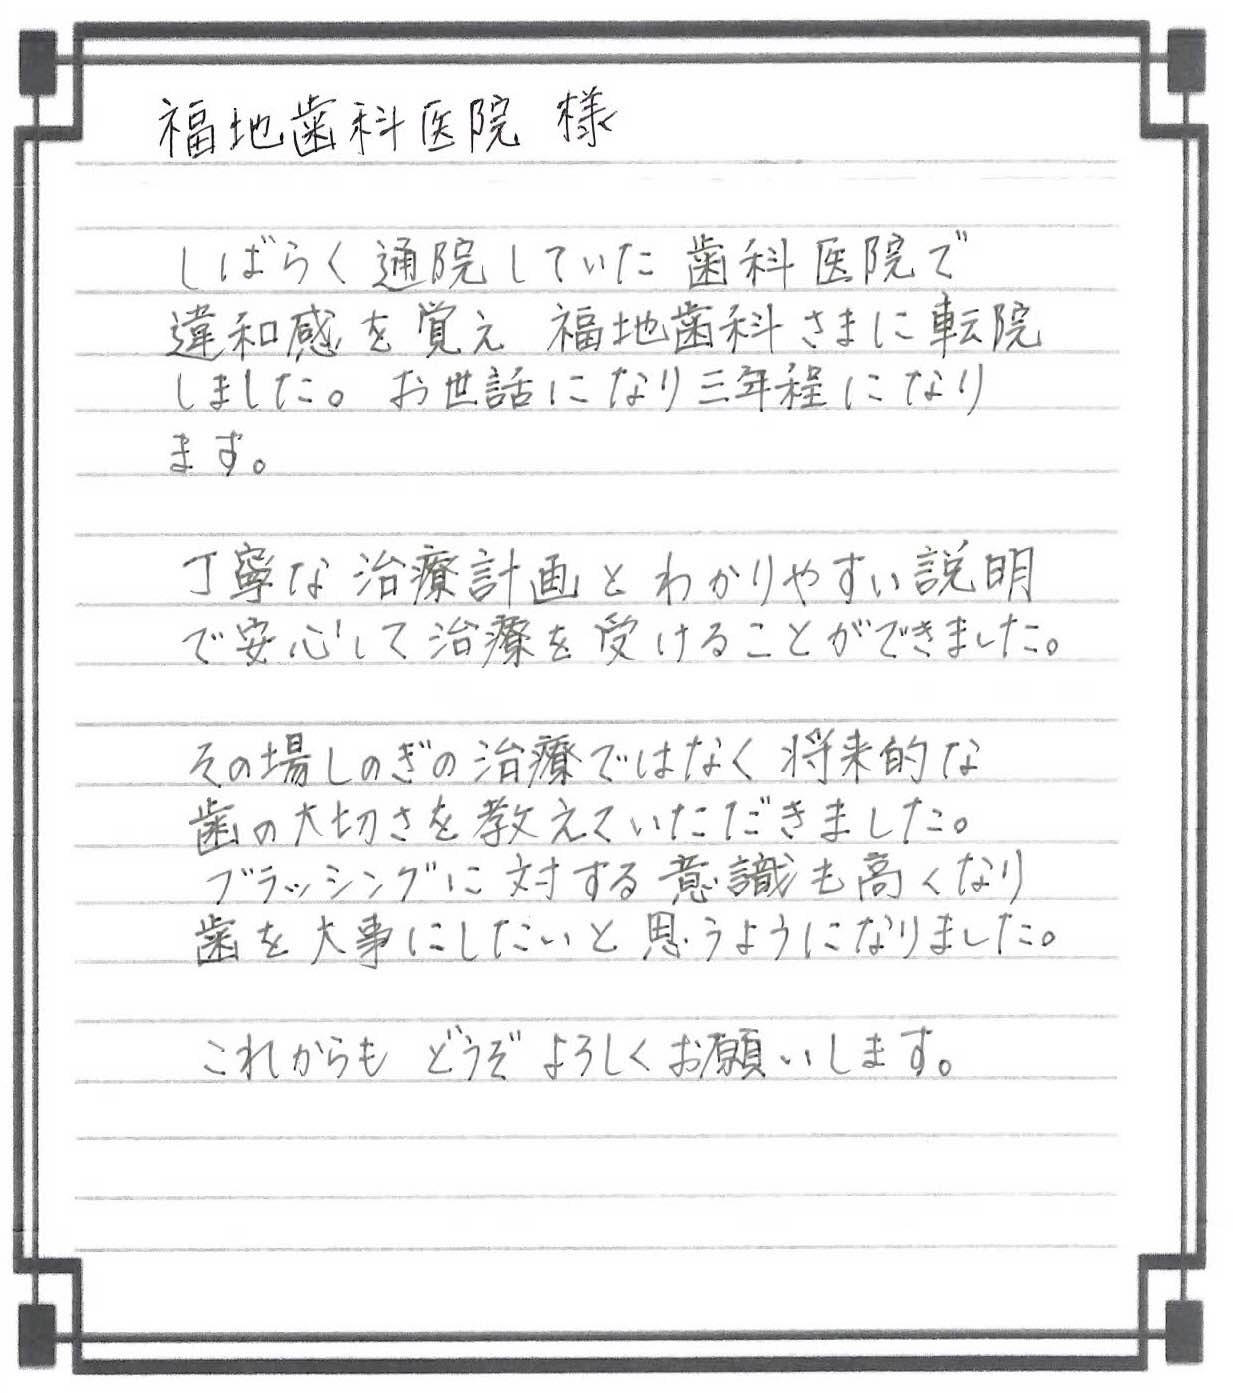 福地歯科医院 様
しばらく通院していた歯科医院で
違和感を覚え 福地歯科さまに転院
しました。お世話になり三年程になり
ます。
丁寧な治療計画とわかりやすい説明
で安心して治療を受けることができました。
その場しのぎの治療ではなく将来的な
歯の大切さを教えていただきました。
ブラッシングに対する意識も高くなり
歯を大事にしたいと思うようになりました。
これからも どうぞよろしくお願いします。